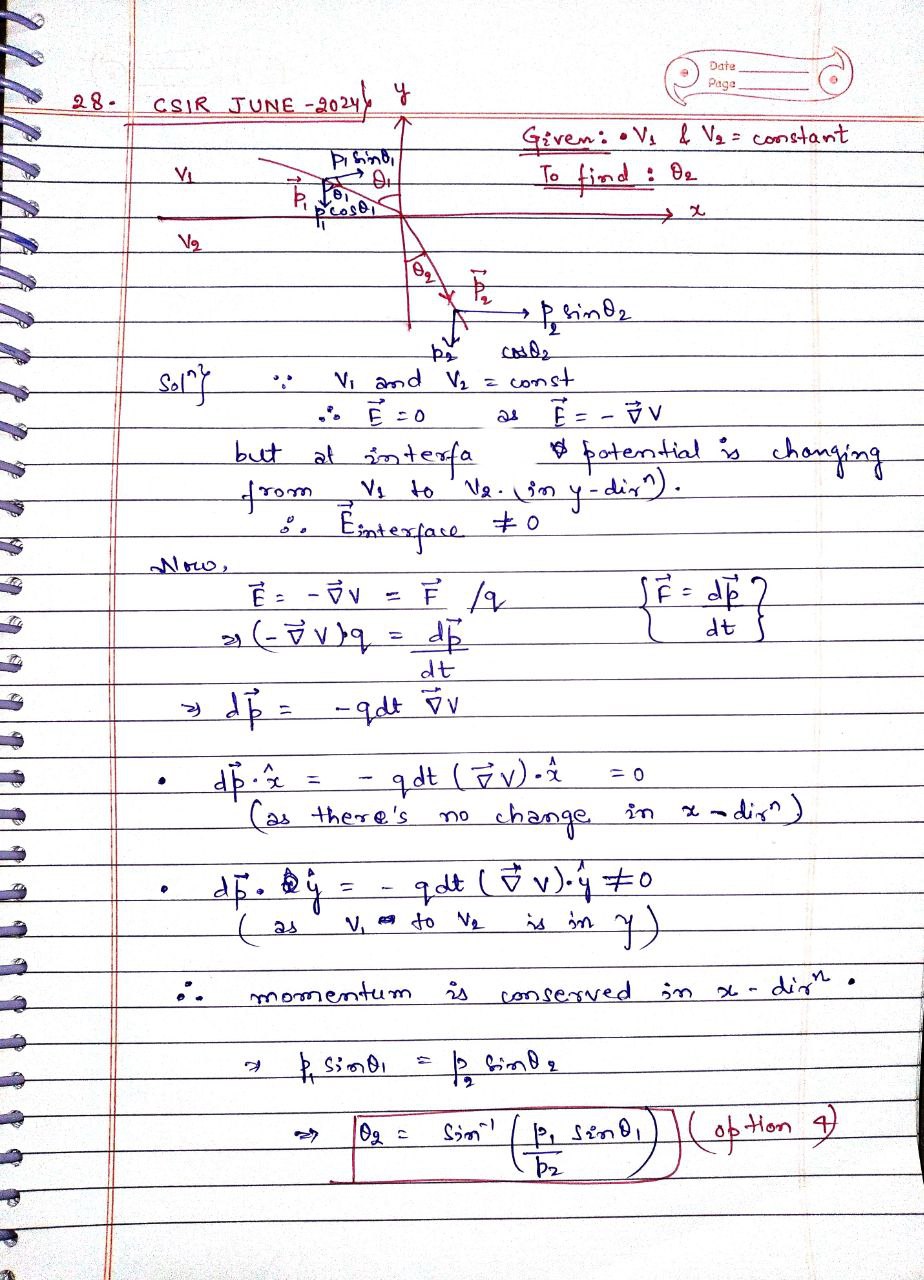 Date
Page
28. CSIR JUNE -2024} y
Given: • V₁ & V₂ = constant
To find : θ₂
p₁ sinθ₁
V₁
θ₁
p⃗₁ θ₁
p₁cosθ₁
x
V₂
θ₂
p⃗₂
p₂ sinθ₂
p₂ cosθ₂
Solⁿ} ∵ V₁ and V₂ = const
∴ E⃗ = 0 as E⃗ = - ∇⃗V
but at interfa potential is changing
from V₁ to V₂. (in y-dirⁿ).
∴ E⃗interface ≠ 0
Now,
E⃗ = - ∇⃗V = F⃗ /q {F⃗ = dp⃗/dt}
⇒ (-∇⃗V)q = dp⃗/dt
⇒ dp⃗ = - qdt ∇⃗V
• dp⃗.x̂ = - qdt (∇⃗V).x̂ = 0
(as there's no change in x-dirⁿ)
• dp⃗.ŷ = - qdt (∇⃗V).ŷ ≠ 0
(as V₁ to V₂ is in y)
∴ momentum is conserved in x-dirⁿ.
⇒ p₁ sinθ₁ = p₂ sinθ₂
⇒ θ₂ = sin⁻¹ (p₁/p₂ sinθ₁) (option 4)